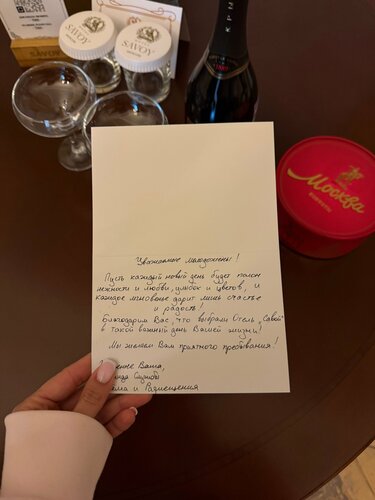 SAVOY
SAVOY
SAVOY
КРЫМ
Москва
КОНФЕТЫ
Уважаемые молодожены!
Пусть каждый новый день будет полон
нежности и любви, улыбок и цветов, и
каждое мгновение дарит лишь счастье
и радость!
Благодарим Вас, что выбрали Отель „Савой"
в такой важный день Вашей жизни!
Мы желаем Вам приятного пребывания!
Ваша,
Службы
и Размещения